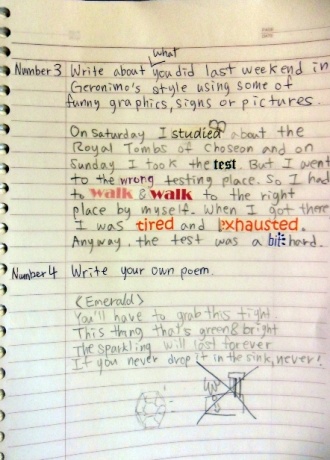 what
Number 3 Write about you did last weekend in
Geronimo's style using some of
funny graphics, signs or pictures.
On Saturday I studied about the
Royal Tombs of Choseon and on
Sunday I took the test. But I went
to the wrong testing place. So I had
to walk & walk to the right
place by myself. When I got there
I was tired and Exhausted.
Anyway, the test was a bit hard.
Number 4 Write your own poem.
<Emerald>
You'll have to grab this tight
This thing that's green & bright
The sparkling will lost forever
If you never drop it in the sink, never!